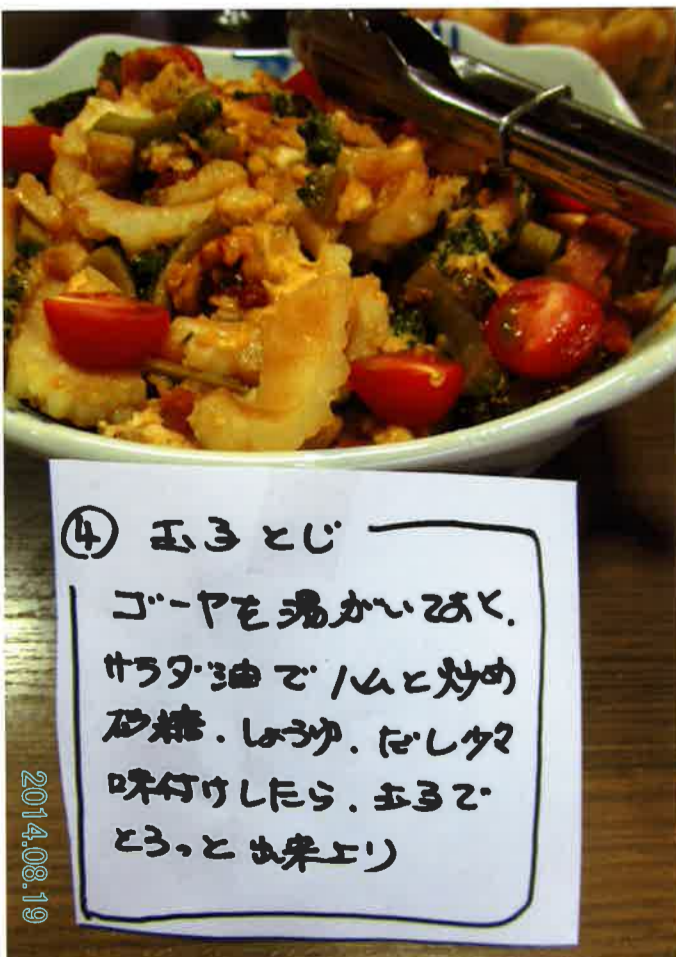 ④ 玉子とじ
ゴーヤを湯がいておく.
サラダ油でハムと炒め
砂糖.しょうゆ.だし少々
味付けしたら.玉子で
とろっと出来上り
2014.08.19